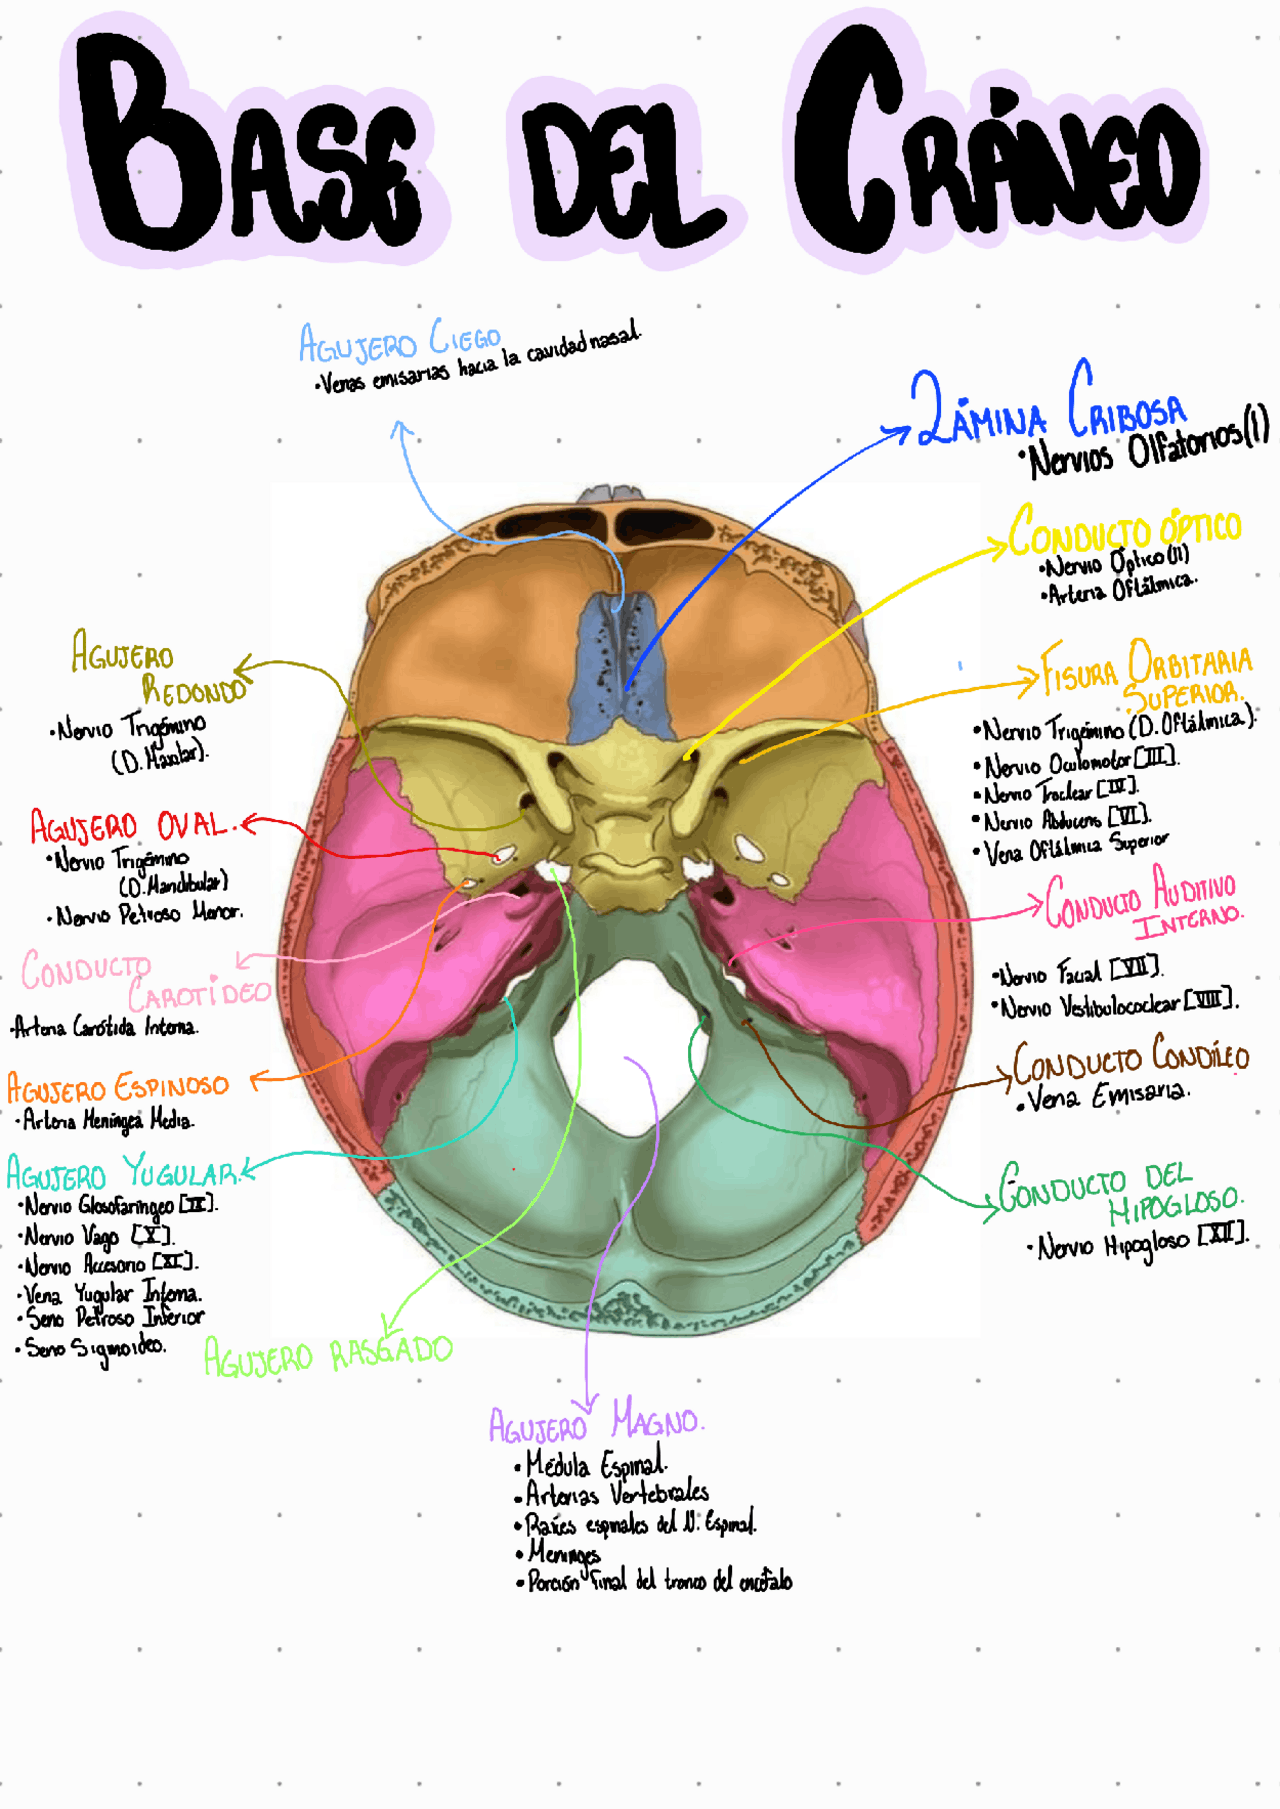 BASE DEL CRÁNEO
AGUJERO CIEGO
•Venas emisarias hacia la cavidad nasal.
LÁMINA CRIBOSA
•Nervios Olfatorios(I)
CONDUCTO ÓPTICO
•Nervio Óptico(II)
•Arteria Oftálmica.
FISURA ORBITARIA
SUPERIOR.
•Nervio Trigémino (D. Oftálmica).
•Nervio Oculomotor [III].
•Nervio Troclear [IV].
•Nervio Abducens [VI].
•Vena Oftálmica Superior
CONDUCTO AUDITIVO
INTERNO.
•Nervio Facial [VII].
•Nervio Vestibulococlear [VIII].
CONDUCTO CONDÍLEO
•Vena Emisaria.
CONDUCTO DEL
HIPOGLOSO.
•Nervio Hipogloso [XII].
AGUJERO
REDONDO
•Nervio Trigémino
(D. Maxilar).
AGUJERO OVAL.
•Nervio Trigémino
(D. Mandibular)
•Nervio Petroso Menor.
CONDUCTO
CAROTÍDEO
•Arteria Carótida Interna.
AGUJERO ESPINOSO
•Arteria Meníngea Media.
AGUJERO YUGULAR.
•Nervio Glosofaríngeo [IX].
•Nervio Vago [X].
•Nervio Accesorio [XI].
•Vena Yugular Interna.
•Seno Petroso Inferior
•Seno Sigmoideo.
AGUJERO RASGADO
AGUJERO MAGNO.
•Médula Espinal.
•Arterias Vertebrales
•Raíces espinales del N. Espinal.
•Meninges
•Porción final del tronco del encéfalo